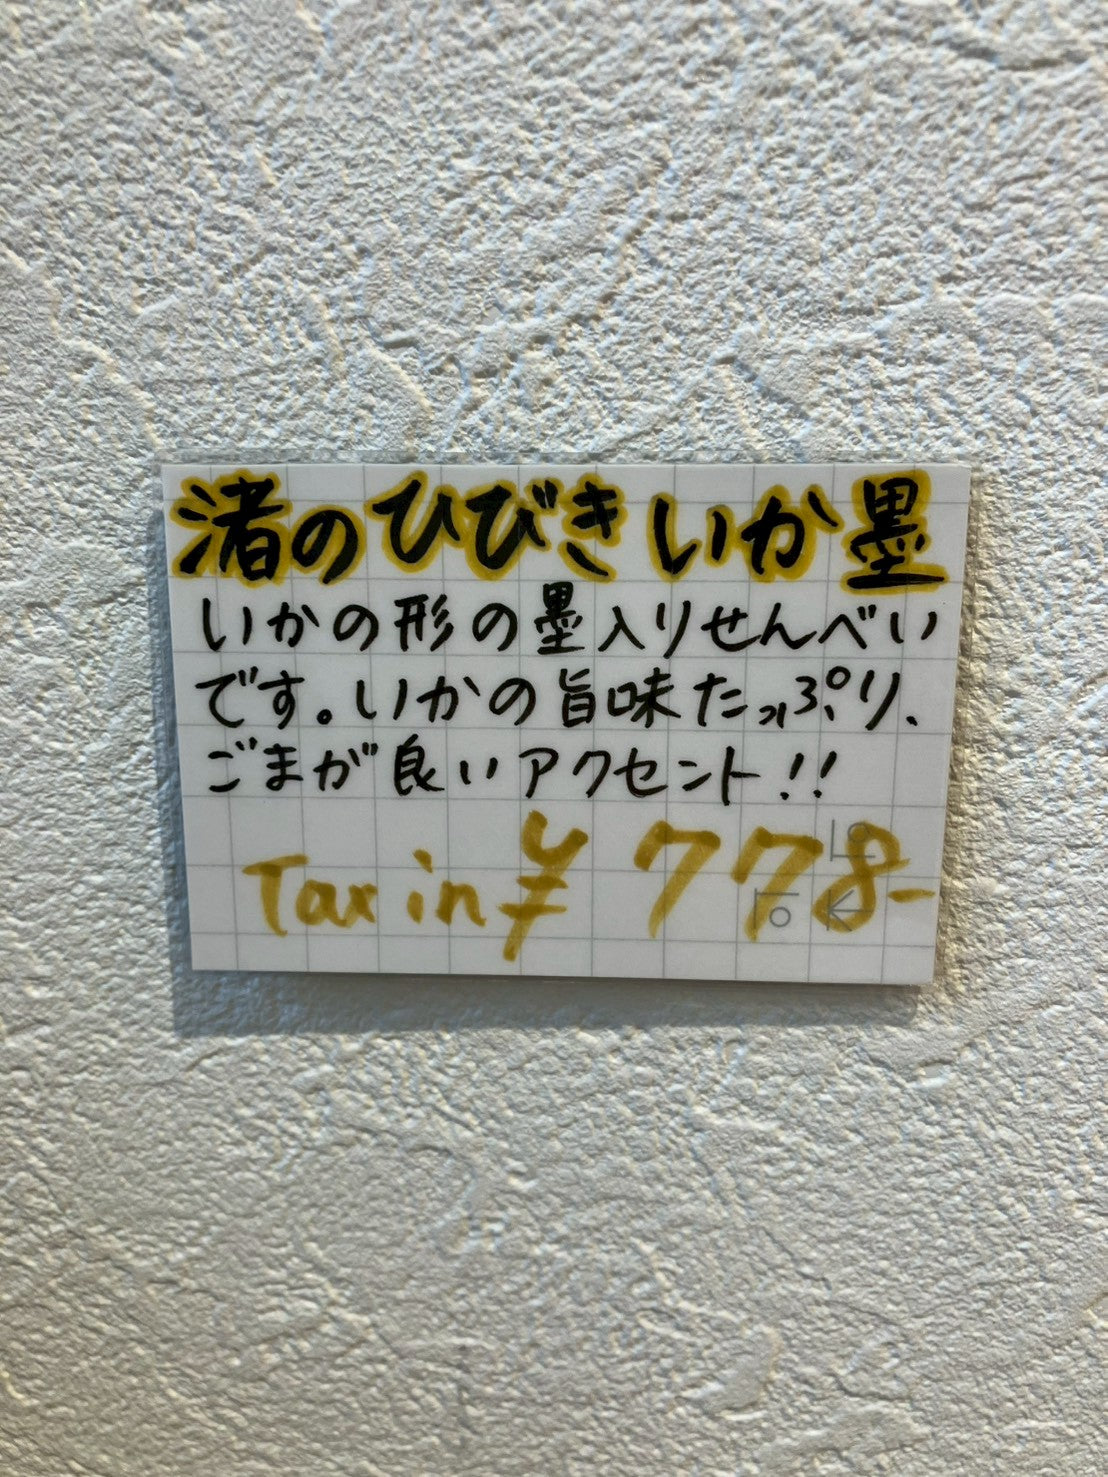 渚のひびきいか墨
いかの形の墨入りせんべい
です。いかの旨味たっぷり、
ごまが良いアクセント!!
Tax in ¥778-